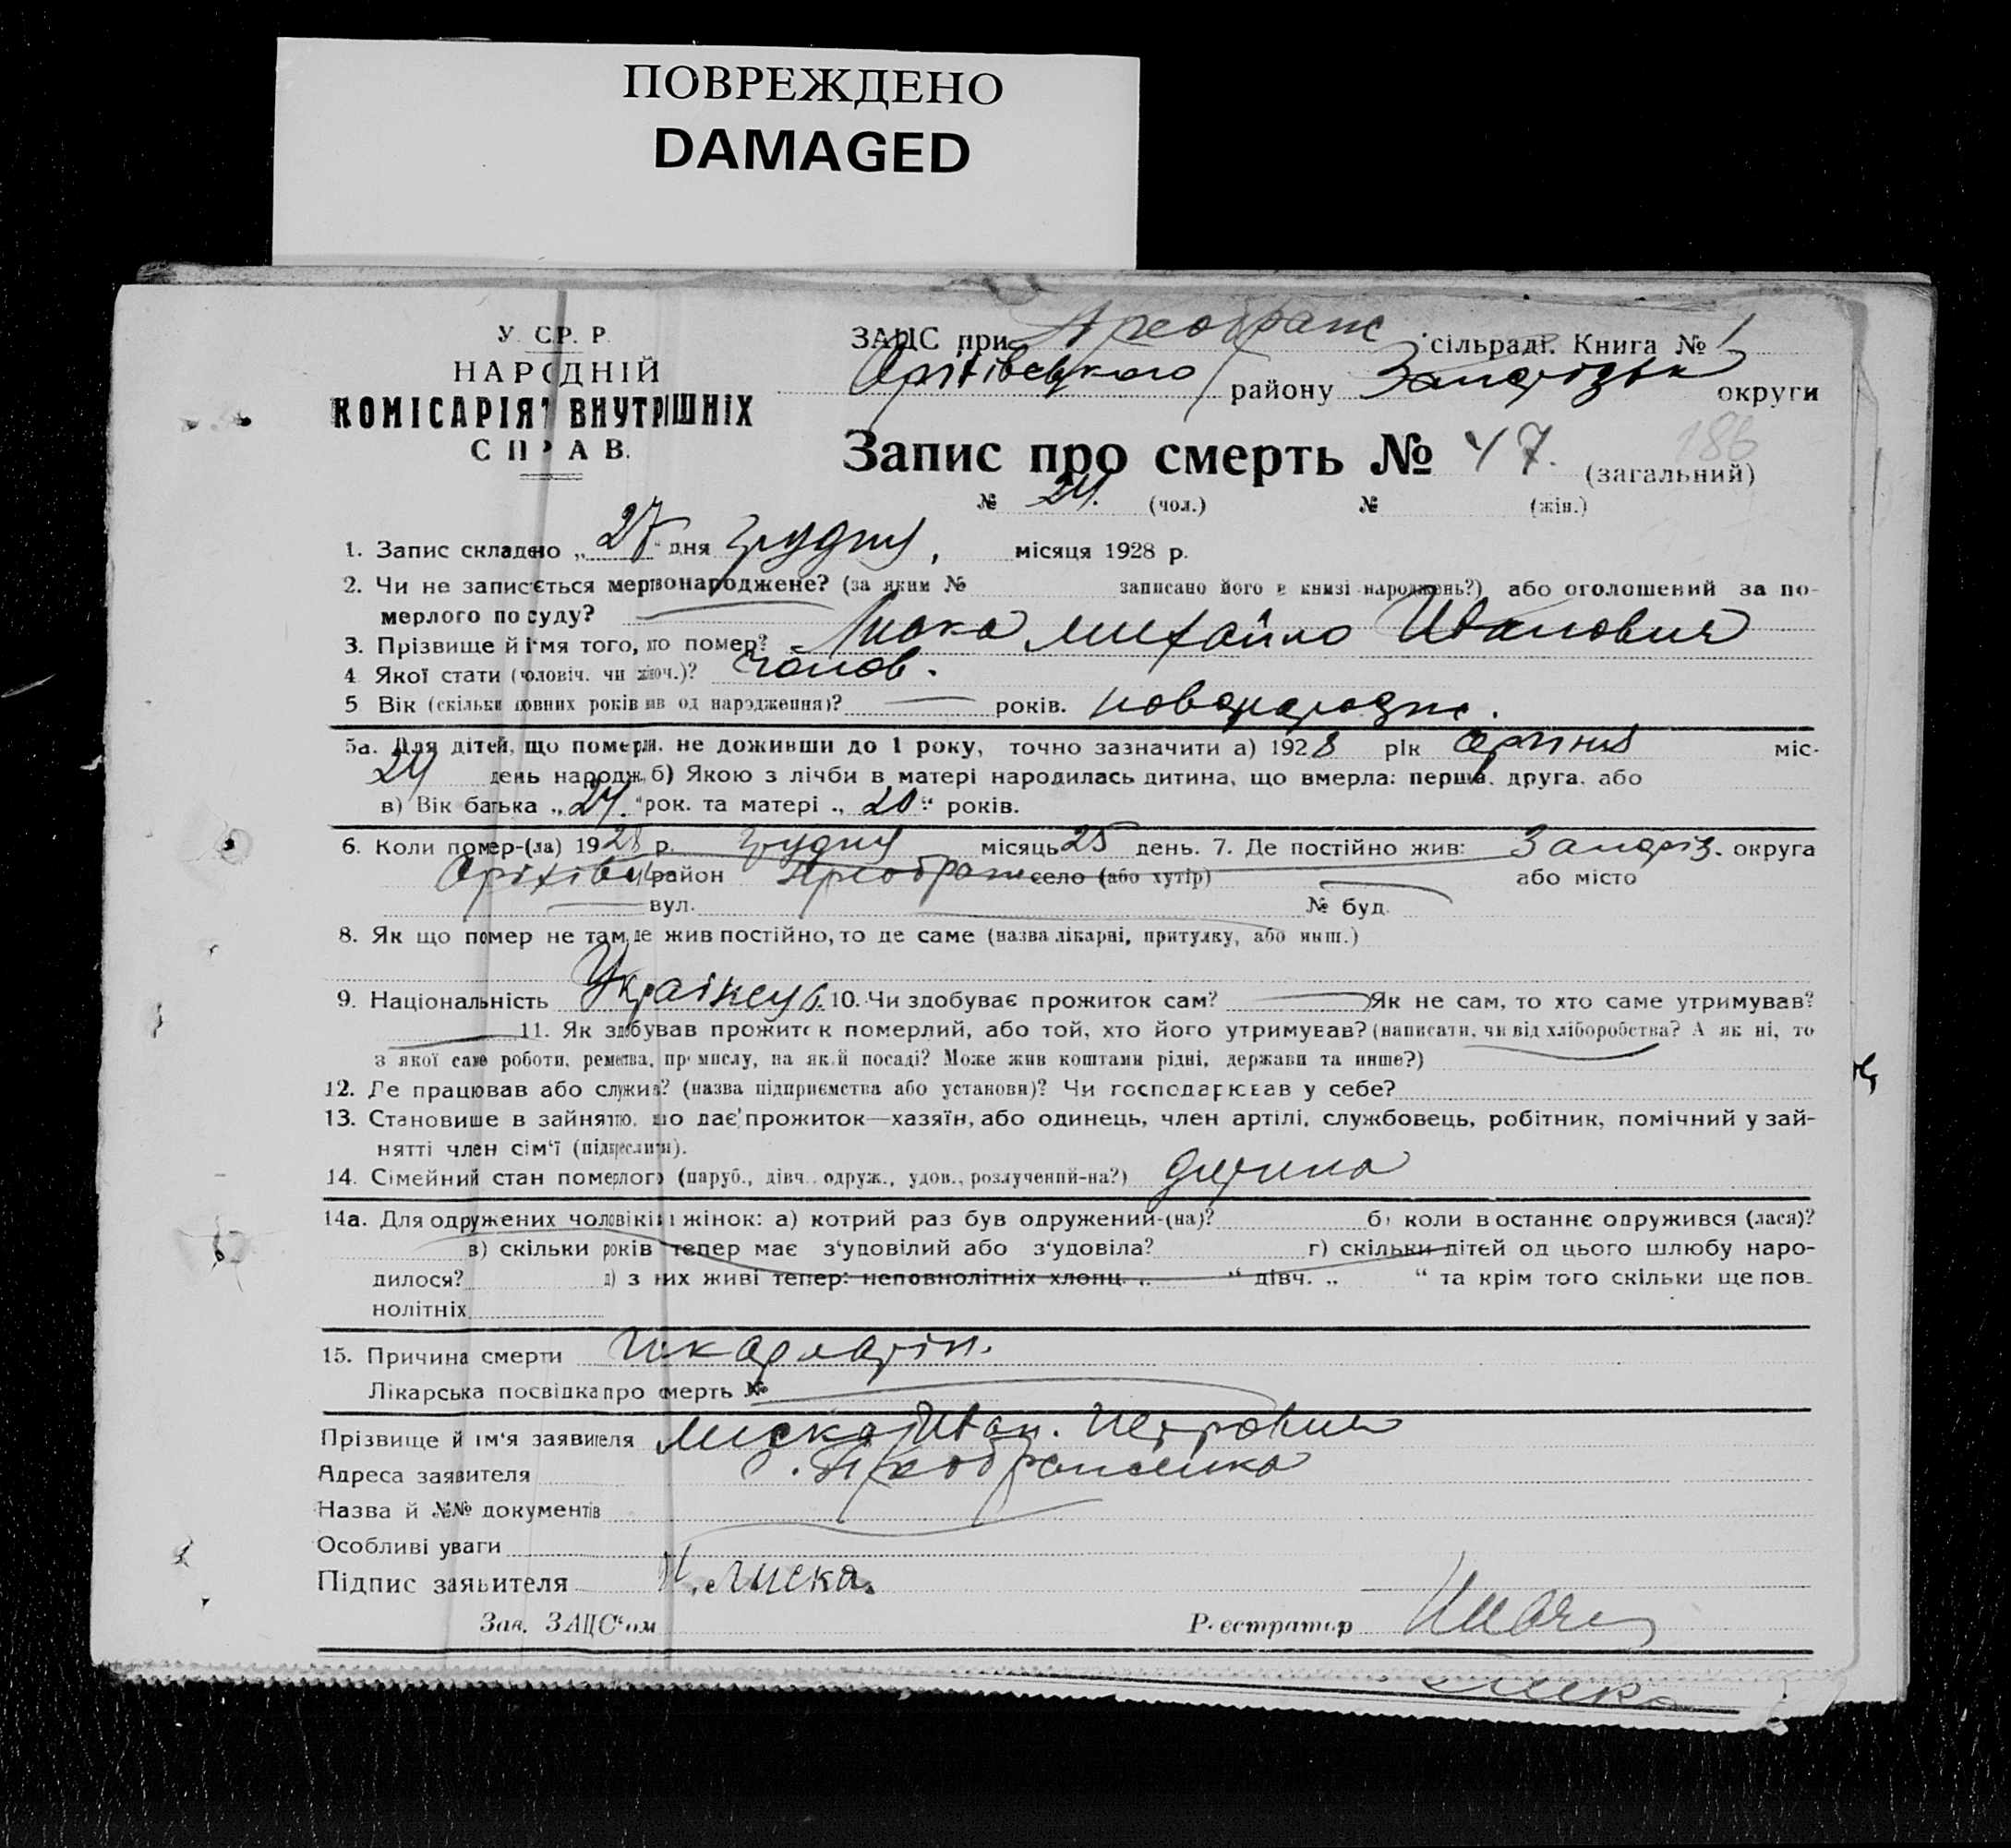 ПОВРЕЖДЕНО
DAMAGED
У. СР. Р.
НАРОДНІЙ
КОМІСАРІЯТ ВНУТРІШНІХ
СПРАВ.
ЗАЦС при Преображ сільраді. Книга № 1
Оріхівського району Запорізьк округи
Запис про смерть № 47. (загальний)
186
№ 24. (чол.) № (жін.)
1. Запис складено „ 27 " дня грудня, місяця 1928 р.
2. Чи не записється мертвонароджене? (за яким № записано його в книзі народжень?) або оголошений за по-
мерлого по суду?
3. Прізвище й ім'я того, що помер? Лиска Михайло Иванович
4 Якої стати (чоловіч. чи жіноч.)? чолов.
5 Вік (скільки повних років мав од народження)? — років. новорожден.
5а. Для дітей, що померли. не доживши до 1 року, точно зазначити а) 1928 рік міс-
24 день народж. б) Якою з лічби в матері народилась дитина, що вмерла: перша. друга. або
в) Вік батька „ 24. " рок. та матері „ 20 " років.
6. Коли помер-(ла) 1928 р. грудня місяць 25 день. 7. Де постійно жив: Запоріз. округа
Оріхівськ район Преображен село (або хутір) — або місто
вул. № буд.
8. Як що помер не там, де жив постійно, то де саме (назва лікарні, притулку, або инш.)
9. Національність Українец 10. Чи здобуває прожиток сам? — Як не сам, то хто саме утримував?
11. Як здобував прожиток померлий, або той, хто його утримував? (написати, чи від хліборобства? А як ні, то
з якої саме роботи, ремества, промислу, на якій посаді? Може жив коштами рідні, держави та инше?)
12. Де працював або служив? (назва підприємства або установи)? Чи господарював у себе?
13. Становище в зайняттю, що дає прожиток—хазяїн, або одинець, член артілі, службовець, робітник, помічний у зай-
нятті член сім'ї (підкреслити).
14. Сімейний стан померлого (паруб., дівч., одруж., удов., розлучений-на?) дитина
14а. Для одружених чоловіків і жінок: а) котрий раз був одружений-(на)? б) коли востаннє одружився (лася)?
в) скільки років тепер має з'удовілий або з'удовіла? г) скільки дітей од цього шлюбу наро-
дилося? д) з них живі тепер: неповнолітніх хлопц. „ " дівч. „ " та крім того скільки ще пов-
нолітніх
15. Причина смерти шкарлатін.
Лікарська посвідка про смерть №
Прізвище й ім'я заявителя Лиска Иван. Петрович
Адреса заявителя с. Преображенка
Назва й №№ документів
Особливі уваги
Підпис заявителя И. Лиска.
Зав. ЗАЦС'ом Реєстратор